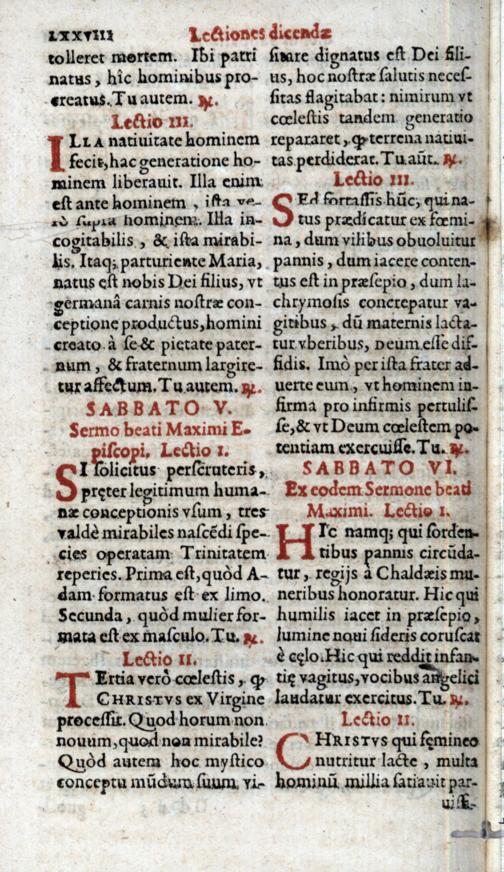 LXXVIII Lectiones dicendæ
tolleret mortem. Ibi patri
natus, hîc hominibus pro-
creatus. Tu autem. ℟.
Lectio III.
ILLA natiuitate hominem
fecit, hac generatione ho-
minem liberauit. Illa enim
est ante hominem, ista ve-
rò supra hominem. Illa in-
cogitabilis, & ista mirabi-
lis. Itaq; parturiente Maria,
natus est nobis Dei filius, vt
germanâ carnis nostræ con-
ceptione productus, homini
creato à se & pietate pater-
num, & fraternum largire-
tur affectum. Tu autem. ℟.
SABBATO V.
Sermo beati Maximi E-
piscopi. Lectio I.
SI solicitus perscruteris,
pręter legitimum huma-
næ conceptionis vsum, tres
valdè mirabiles nascẽdi spe-
cies operatam Trinitatem
reperies. Prima est, quòd A-
dam formatus est ex limo.
Secunda, quòd mulier for-
mata est ex masculo. Tu. ℟.
Lectio II.
TErtia verò cœlestis, ꝙ
CHRISTVS ex Virgine
processit. Quod horum non
nouum, quod non mirabile?
Quòd autem hoc mystico
conceptu mũdum suum vi-
sitare dignatus est Dei fili-
us, hoc nostræ salutis neces-
sitas flagitabat: nimirum vt
cœlestis tandem generatio
repararet, ꝙ terrena natiui-
tas perdiderat. Tu aũt. ℟.
Lectio III.
SEd fortassis hũc, qui na-
tus prædicatur ex fœmi-
na, dum vilibus obuoluitur
pannis, dum iacere conten-
tus est in præsepio, dum la-
chrymosis concrepatur va-
gitibus, dũ maternis lacta-
tur vberibus, Deum esse dif-
fidis. Imò per ista frater ad-
uerte eum, vt hominem in-
firma pro infirmis pertulis-
se, & vt Deum cœlestem po-
tentiam exercuisse. Tu. ℟.
SABBATO VI.
Ex eodem Sermone beati
Maximi. Lectio I.
HIc namq; qui sorden-
tibus pannis circũda-
tur, regijs à Chaldæis mu-
neribus honoratur. Hic qui
humilis iacet in præsepio,
lumine noui sideris coruscat
è cęlo. Hic qui reddit infan-
tię vagitus, vocibus angelici
laudatur exercitus. Tu. ℟.
Lectio II.
CHRISTVS qui fęmineo
nutritur lacte, multa
hominũ millia satiauit par-
uiss-